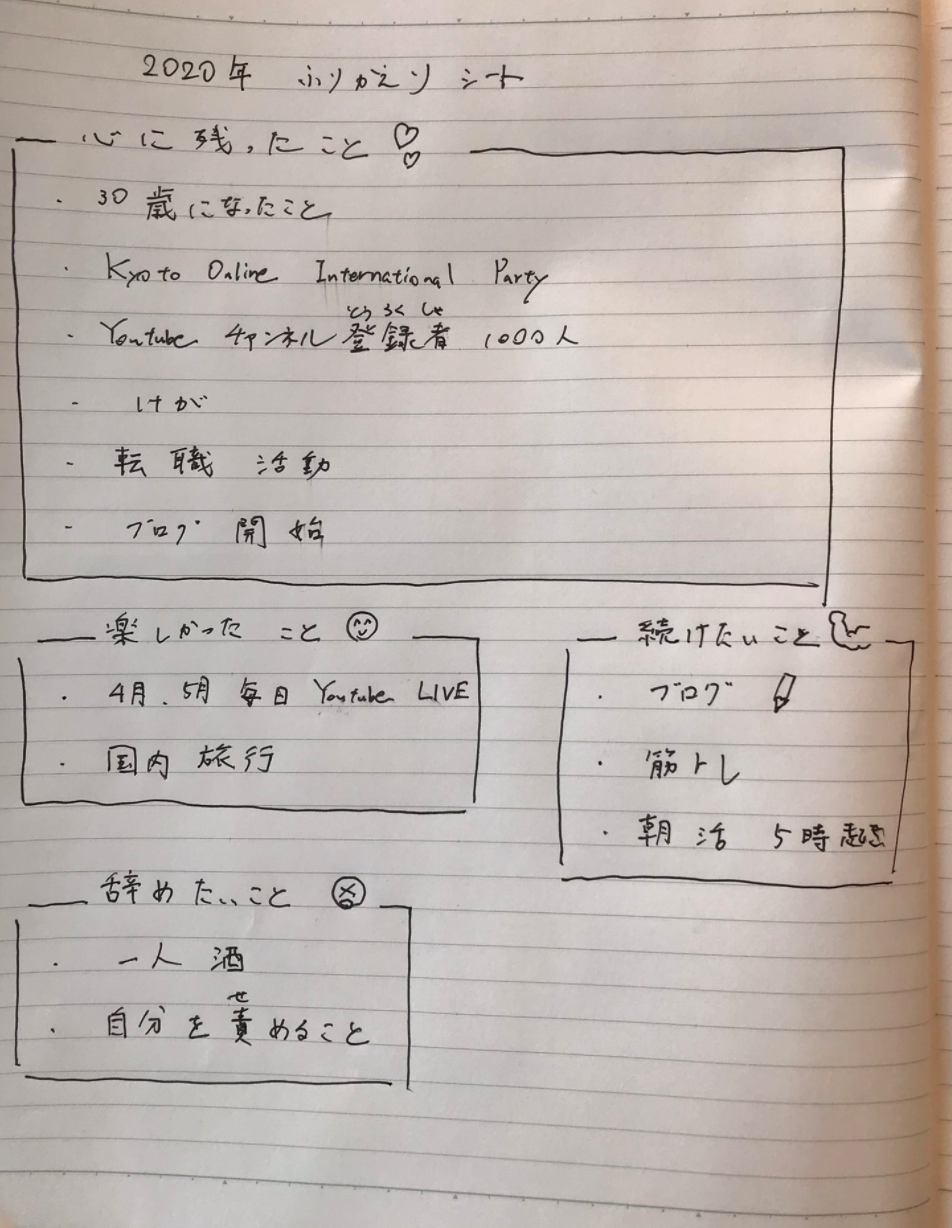 2020年 ふりかえり シート
心に残ったこと
・30歳になったこと
・Kyoto Online International Party
とう ろく しゃ
・Youtube チャンネル 登録者 1000人
- けが
- 転職 活動
- ブログ 開始
楽しかった こと
・4月、5月 毎日 Youtube LIVE
・国内 旅行
続けたいこと
・ブログ
・筋トレ
・朝活 5時起き
辞めたいこと
・一人 酒
せ
・自分を責めること